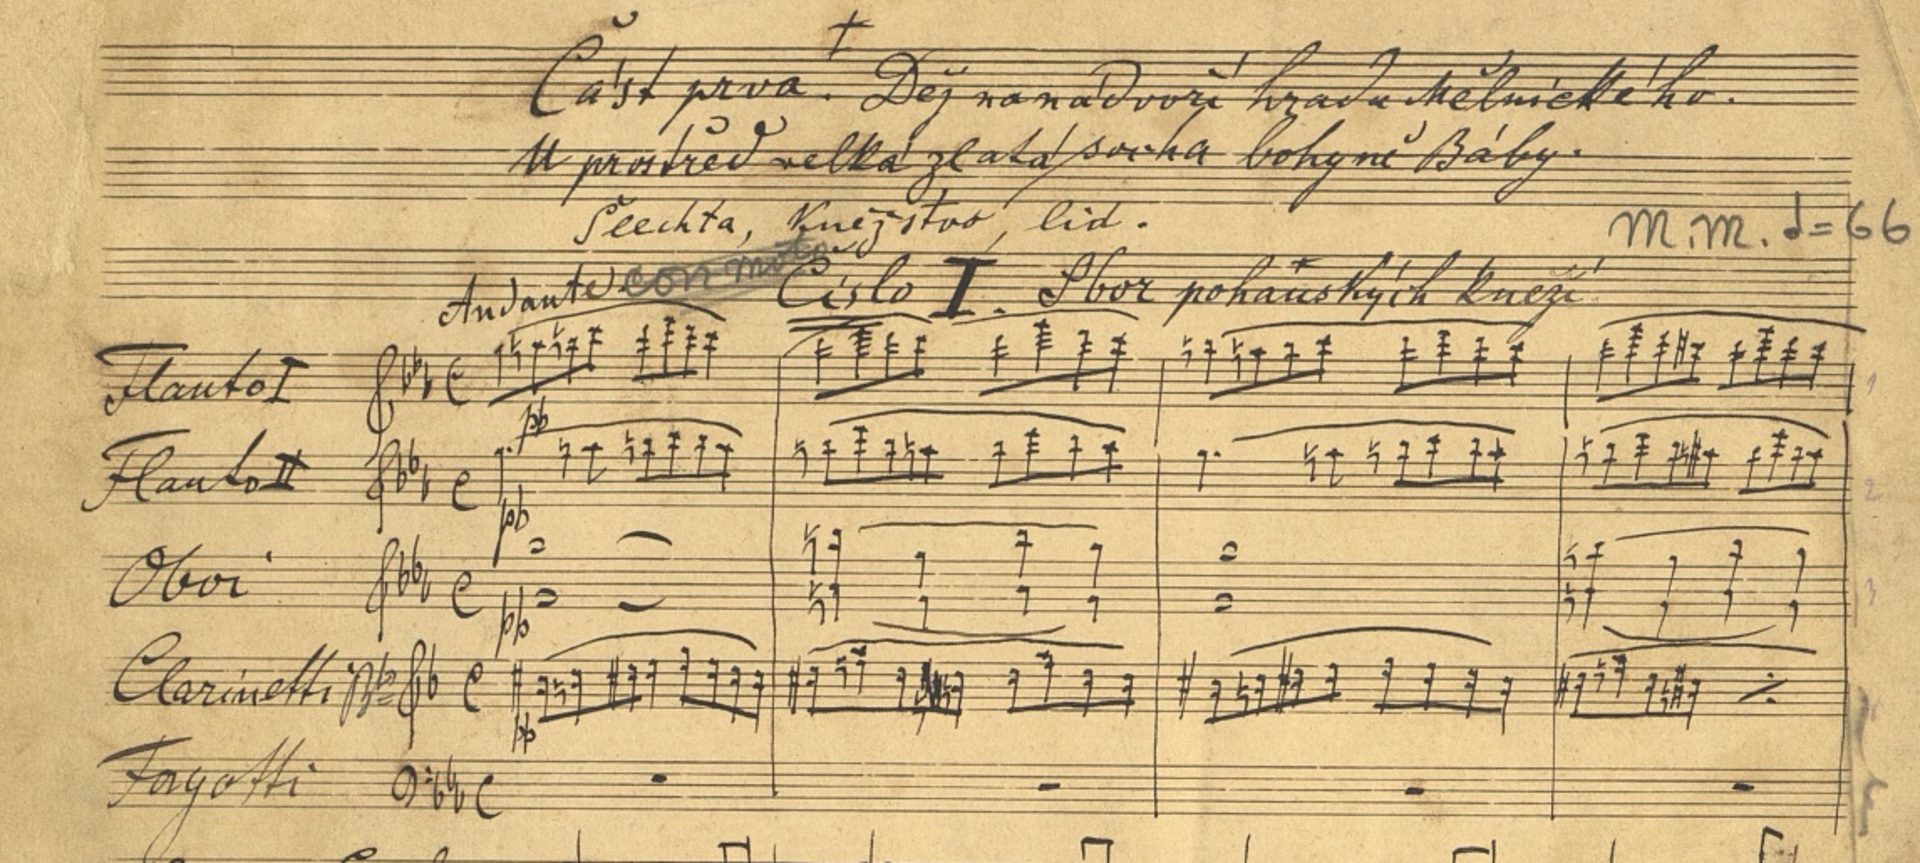 Část prvá. Děj na nádvoří hradu Mělnického.
U prostřed velká zlatá socha bohyně Báby.
Šlechta, Kněžstvo, lid.
M.M. 𝅗𝅥 = 66
Andante con moto Číslo I. Sbor pohanských kněží
Flauto I
pp
Flauto II
pp
Oboi
pp
Clarinetti
pp
Fagotti